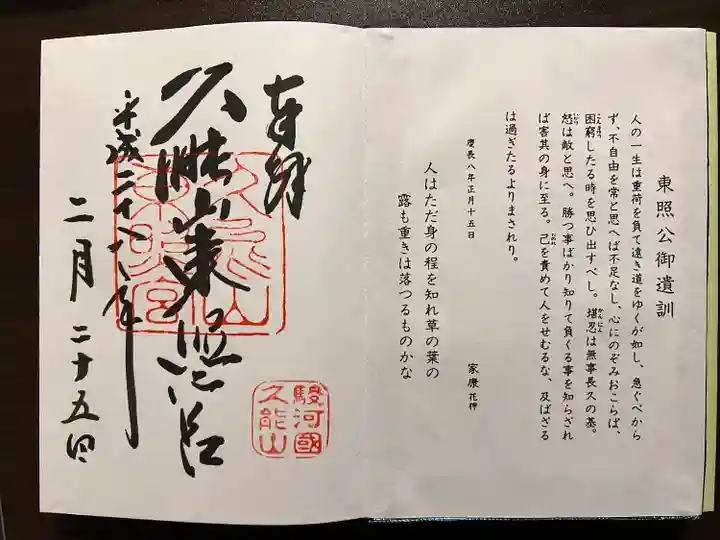 東照公御遺訓
人の一生は重荷を負て遠き道をゆくが如し、急ぐべから
ず、不自由を常と思へば不足なし、心にのぞみおこらば、
困窮したる時を思ひ出すべし。堪忍は無事長久の基。
怒は敵と思へ。勝つ事ばかり知りて負くる事を知らざれ
ば害其の身に至る。己を責めて人をせむるな、及ばざる
は過ぎたるよりまされり。
慶長八年正月十五日
家康 花押
人はただ身の程を知れ草の葉の
露も重きは落つるものかな
奉拝
久能山東照宮
平成二十八年
二月二十五日
久能山
東照宮
駿河國
久能山